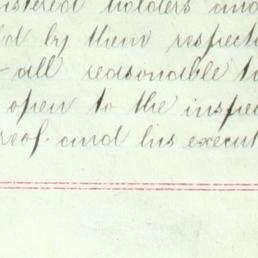 istered holders and
d by them respect
all reasonable ti
open to the inspec
reof and his execut